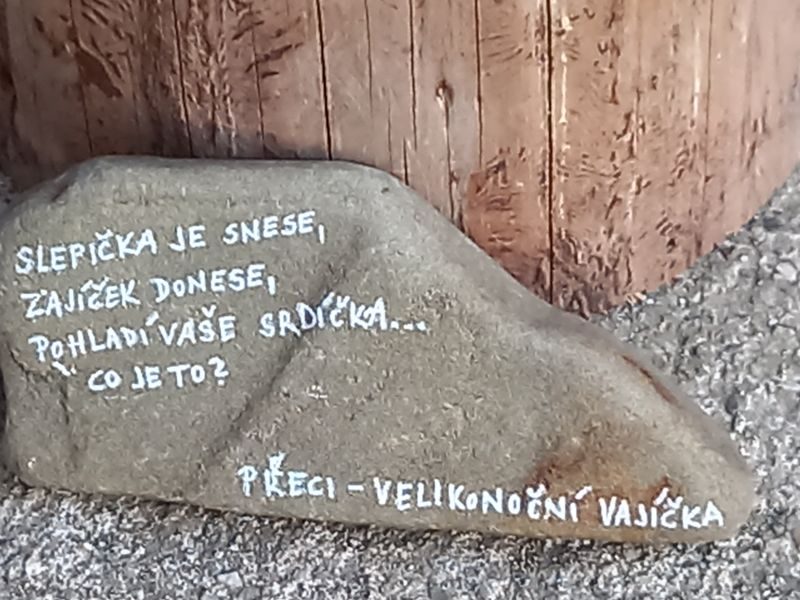 SLEPIČKA JE SNESE,
ZAJÍČEK DONESE,
POHLADÍ VAŠE SRDÍČKA...
CO JE TO?
PŘECI - VELIKONOČNÍ VAJÍČKA